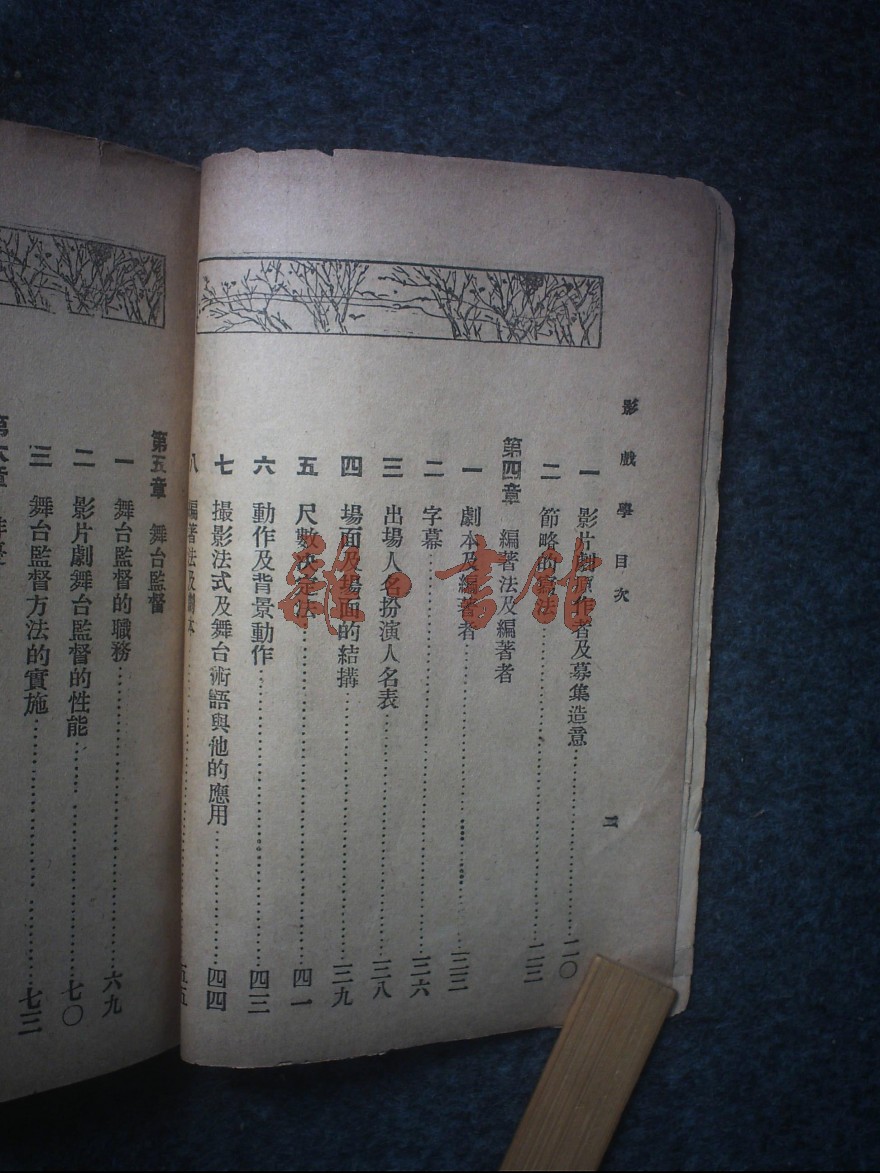 影戲學目次
二
一 影片劇原作者及募集造意……二〇
二 節略的寫法……二三
第四章 編著法及編著者
一 劇本及編著者……三三
二 字幕……三六
三 出場人名扮演人名表……三八
四 場面及場面的結搆……三九
五 尺數決定法……四一
六 動作及背景動作……四三
七 撮影法式及舞台術語與他的應用……四四
八 編著法及劇本……五五
第五章 舞台監督
一 舞台監督的職務……六九
二 影片劇舞台監督的性能……七〇
三 舞台監督方法的實施……七三
第六章
雅書館